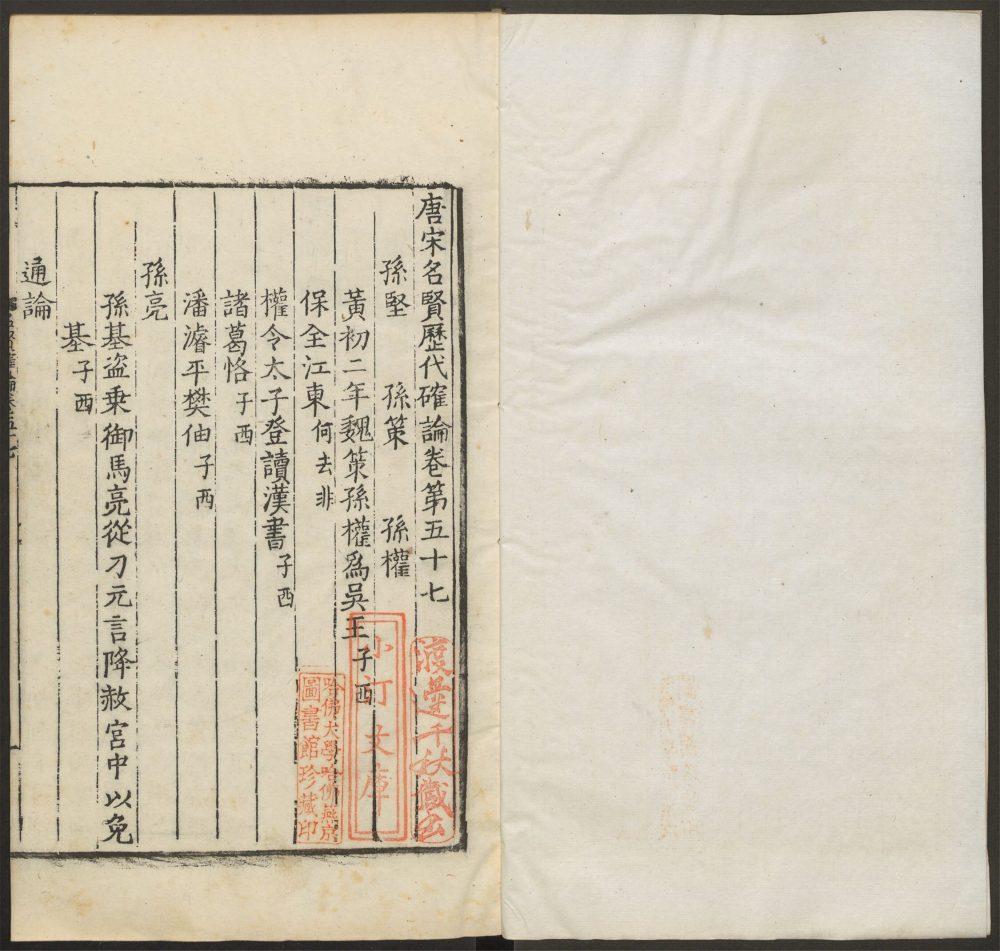 唐宋名賢歷代確論卷第五十七
孫堅 孫策 孫權
黃初二年魏策孫權爲吳王子西
保全江東何去非
權令太子登讀漢書子西
諸葛恪子西
潘濬平樊伷子西
孫亮
孫基盜乗御馬亮從刁元言降赦宮中以免
基子西
通論
渡邊千秋藏書
小汀文庫
哈佛大學哈佛燕京
圖書館珍藏印